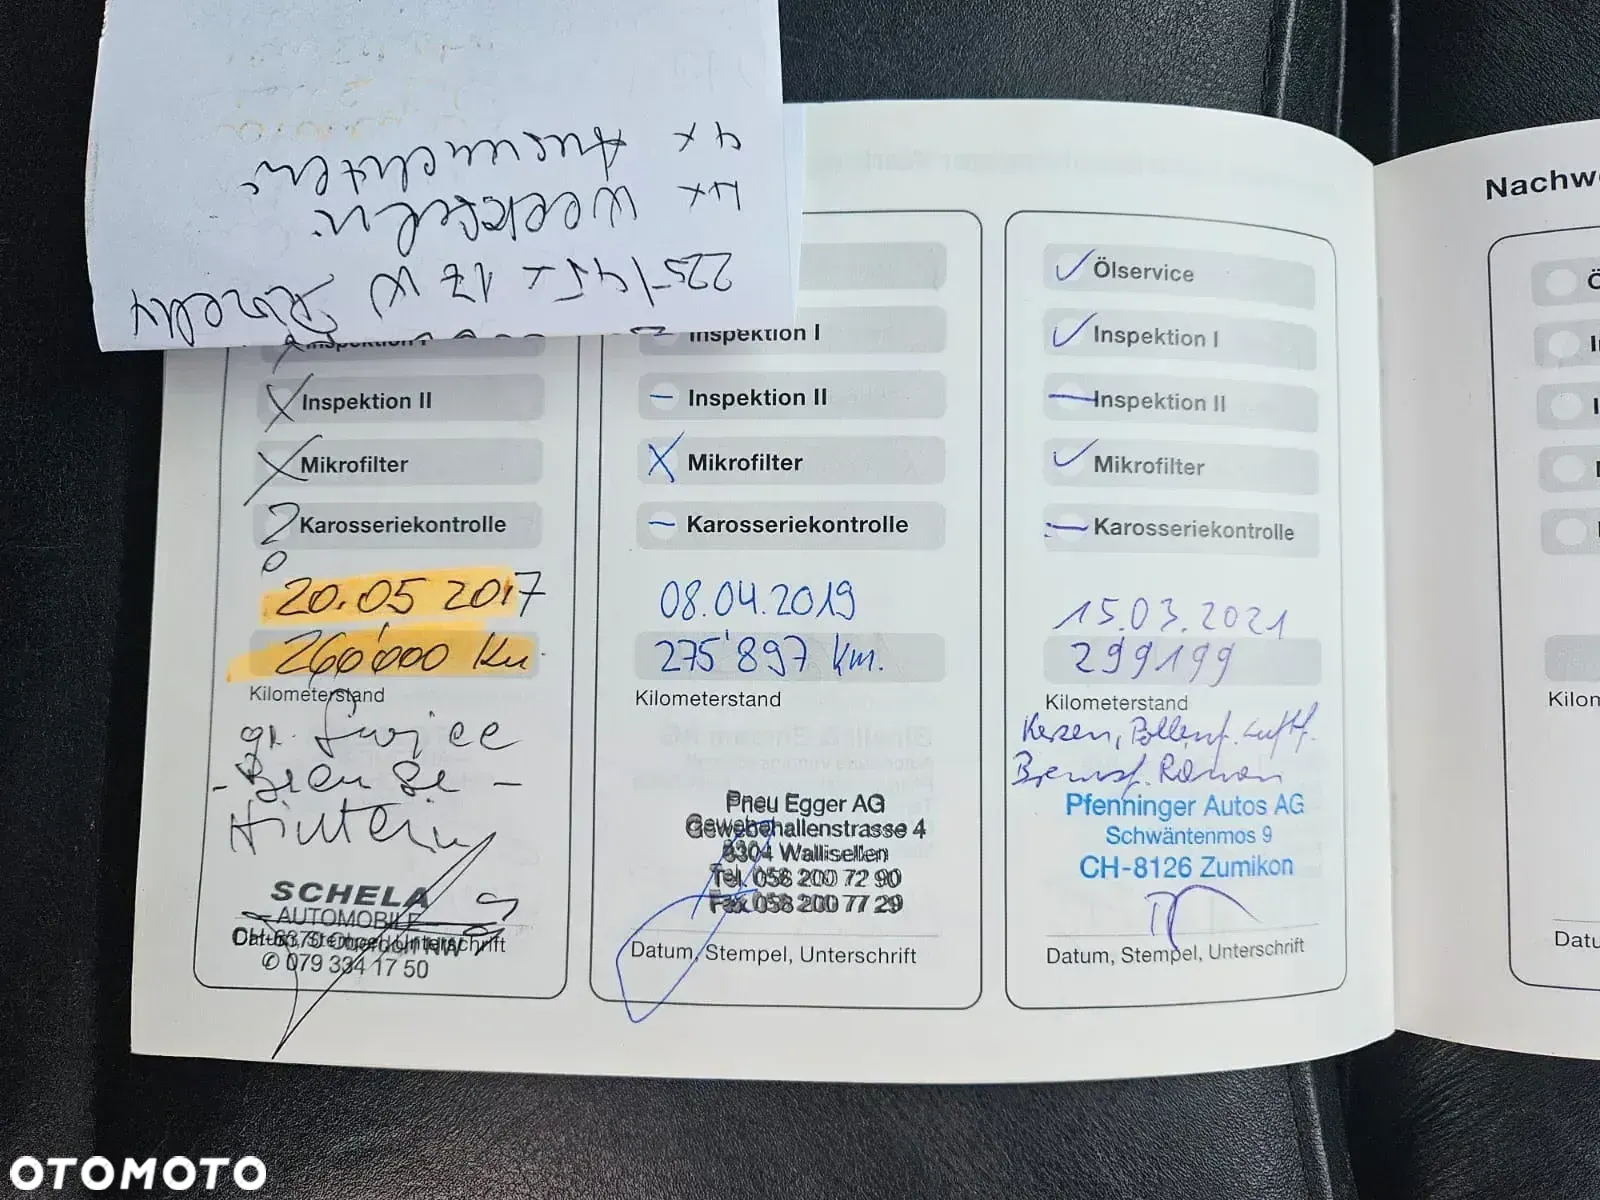 4x Ausmelken
4x Wechseln
225/45 - 17 W Pirelly
Inspektion I
Inspektion II
Mikrofilter
Karosseriekontrolle
20.05 2017
260'000 Km.
Kilometerstand
gr. Service
- Bremse -
Hintern
SCHELA
AUTOMOBILE
Datum, Stempel, Unterschrift
✆ 079 334 17 50
Inspektion I
Inspektion II
Mikrofilter
Karosseriekontrolle
08.04.2019
275'897 Km.
Kilometerstand
Pneu Egger AG
Gewebehallenstrasse 4
8304 Wallisellen
Tel. 058 200 72 90
Fax 058 200 77 29
Datum, Stempel, Unterschrift
Ölservice
Inspektion I
Inspektion II
Mikrofilter
Karosseriekontrolle
15.03.2021
299199
Kilometerstand
Kerzen, Pollenf. Luftf.
Bremsf.
Pfenninger Autos AG
Schwäntenmos 9
CH-8126 Zumikon
Datum, Stempel, Unterschrift
Nachw
OTOMOTO